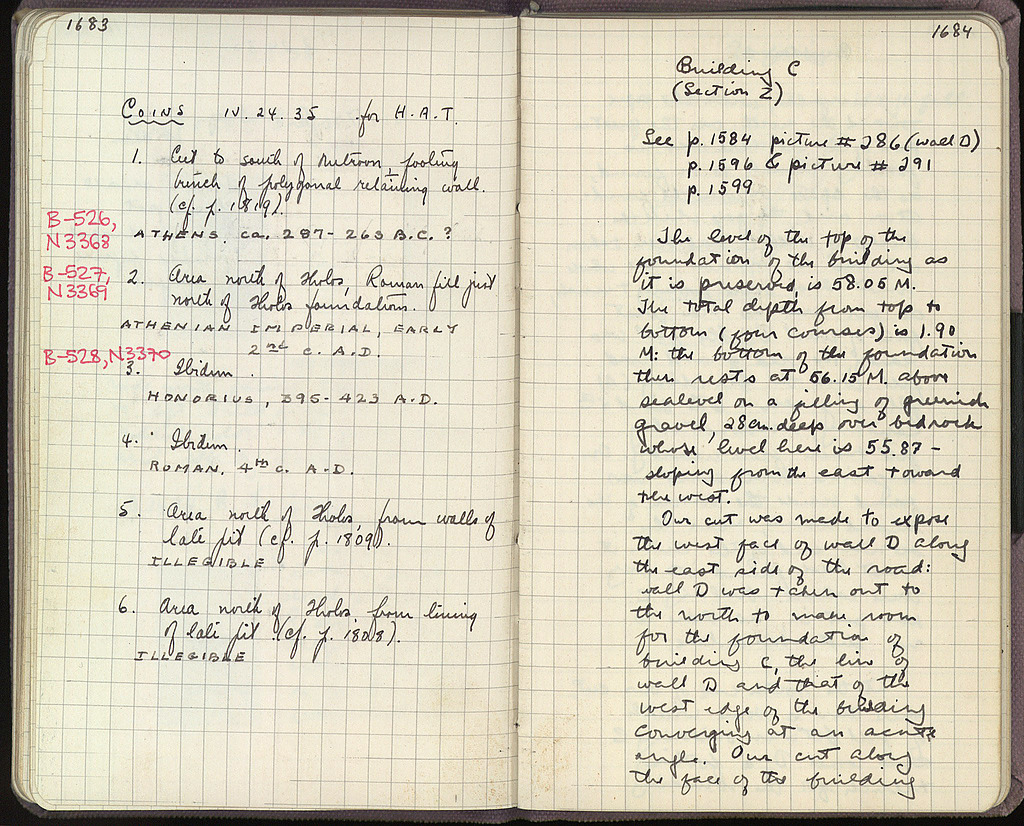 1683
COINS IV. 24. 35 for H.A.T.
1. Cut to south of Metroon, footing
trench of polygonal retaining wall.
(cf. p. 1819).
B-526,
N3368
ATHENS, ca. 287-263 B.C. ?
B-527,
N3369
2. Area north of Tholos, Roman fill just
north of Tholos foundations.
ATHENIAN IMPERIAL, EARLY
2nd c. A.D.
B-528, N3370
3. Ibidem.
HONORIUS, 395-423 A.D.
4. Ibidem.
ROMAN, 4th c. A.D.
5. Area north of Tholos, from walls of
late pit (cf. p. 1809).
ILLEGIBLE
6. Area north of Tholos, from lining
of late pit (cf. p. 1808).
ILLEGIBLE
1684
Building C
(Section Z)
See p. 1584 picture # 286 (wall D)
p. 1596 & picture # 291
p. 1599
The level of the top of the
foundation of the building as
it is preserved is 58.05 M.
The total depth from top to
bottom (four courses) is 1.90
M: the bottom of the foundation
then rests at 56.15 M. above
sealevel on a filling of greenish
gravel, 28 cm. deep over bedrock
whose level here is 55.87 -
sloping from the east toward
the west.
Our cut was made to expose
the west face of wall D along
the east side of the road:
wall D was taken out to
the north to make room
for the foundation of
building C, the line of
wall D and that of the
west edge of the building
converging at an acute
angle. Our cut along
the face of the building